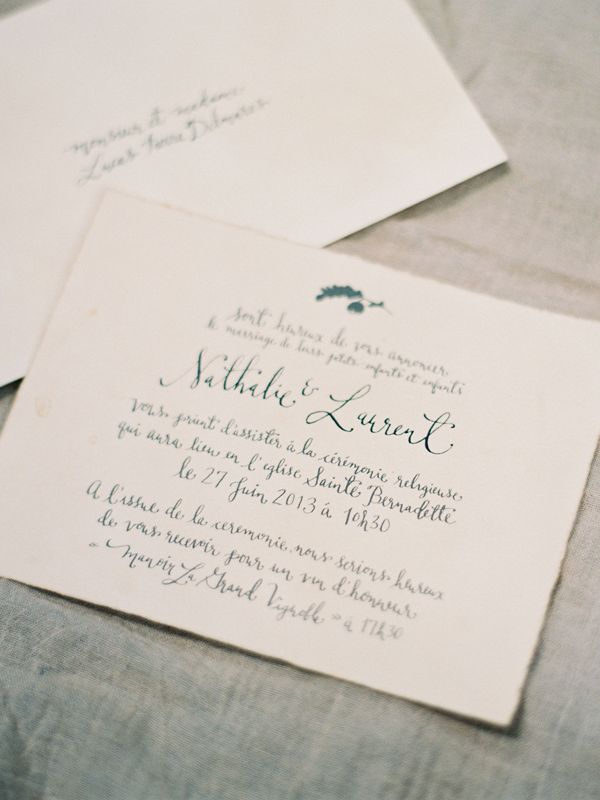 monsieur et madame
Lucas
sont heureux de vous annoncer
le marriage de leurs petits enfants et enfants
Nathalie & Laurent
Vous prient d'assister à la cérémonie religieuse
qui aura lieu en l'eglise Sainte Bernadette
le 27 Juin 2013 à 10h30
A l'issue de la ceremonie, nous serions heureux
de vous recevoir pour un vin d'honneur
« Manoir La Grand Vignoble » à 17h30